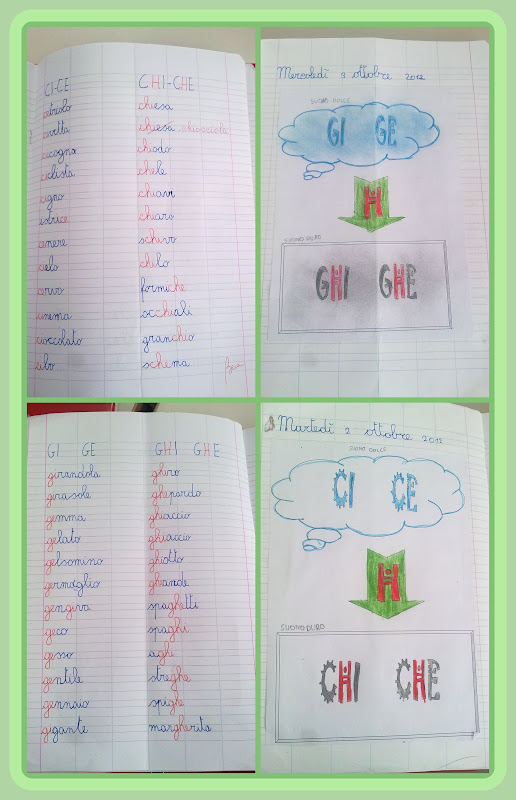 CI-CE CHI-CHE
cetriolo chiesa
civetta chiesa chiocciola
cicogna chiodo
ciclista chele
cigno chiavi
istrice chiaro
cenere schivo
cielo chilo
cervo formiche
cinema occhiali
cioccolato granchio
cibo schema
Mercoledì 3 ottobre 2012
SUONO DOLCE
GI GE
H
SUONO DURO
GHI GHE
GI GE GHI GHE
girandola ghiro
girasole ghepardo
gemma ghiaccio
gelato ghiaccio
gelsomino ghiotto
germoglio ghiande
gengiva spaghetti
geco spaghi
gesso aghi
gentile streghe
gennaio spighe
gigante margherita
Martedì 2 ottobre 2012
SUONO DOLCE
CI CE
H
SUONO DURO
CHI CHE